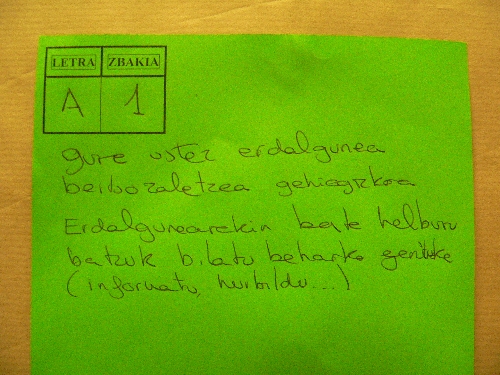 LETRA ZBAKIA
A 1
gure ustez erdalgunea
gehiegizkoa
Erdalgunearekin beste helburu
batzuk bilatu beharko genuke
(informatu, hurbildu...)